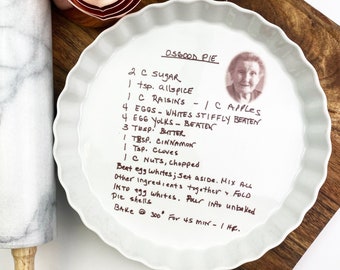 OSGOOD PIE
2 C SUGAR
1 tsp. allspice
1 C RAISINS - 1 C APPLES
4 EGGS - WHITES STIFFLY BEATEN
4 EGG YOLKS - BEATEN
3 TBSP. BUTTER
1 TBSP. CINNAMON
1 Tsp. Cloves
1 C NUTS, Chopped
Beat egg whites; Set aside. Mix All
Other ingredients together & FOLD
INTO egg whites. Pour into unbaked
Pie shells
BAKE @ 300° For 45 min - 1 HR.